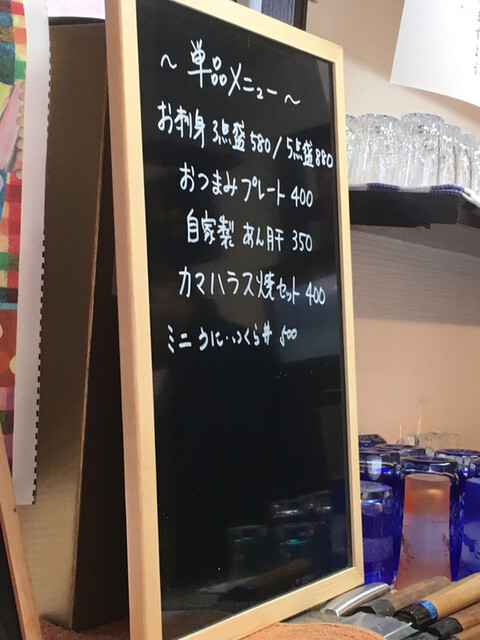 ～単品メニュー～
お刺身 3点盛 580/5点盛 880
おつまみプレート 400
自家製 あん肝 350
カマハラス焼セット 400
ミニ うに・いくら丼 500